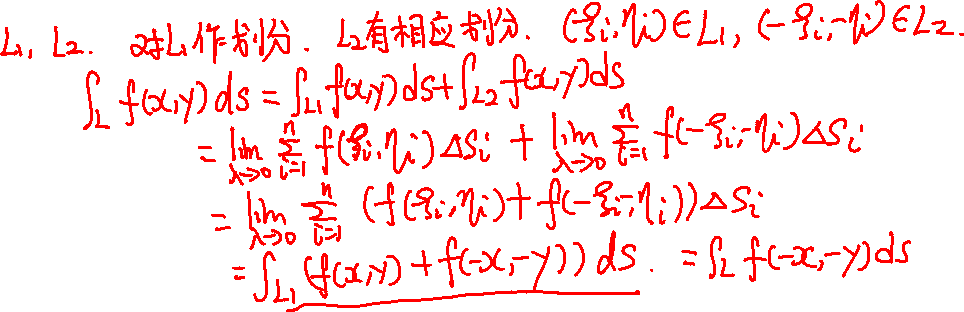 L₁, L₂. 对L₁作划分. L₂有相应划分. (ξᵢ,ηᵢ)∈L₁, (-ξᵢ,-ηᵢ)∈L₂.
∫_L f(x,y)ds = ∫_{L₁} f(x,y)ds + ∫_{L₂} f(x,y)ds
= lim_{λ→0} Σ_{i=1}^{n} f(ξᵢ,ηᵢ)ΔSᵢ + lim_{λ→0} Σ_{i=1}^{n} f(-ξᵢ,-ηᵢ)ΔSᵢ
= lim_{λ→0} Σ_{i=1}^{n} (f(ξᵢ,ηᵢ)+f(-ξᵢ,-ηᵢ))ΔSᵢ
= ∫_{L₁} (f(x,y)+f(-x,-y))ds. = ∫_L f(-x,-y)ds